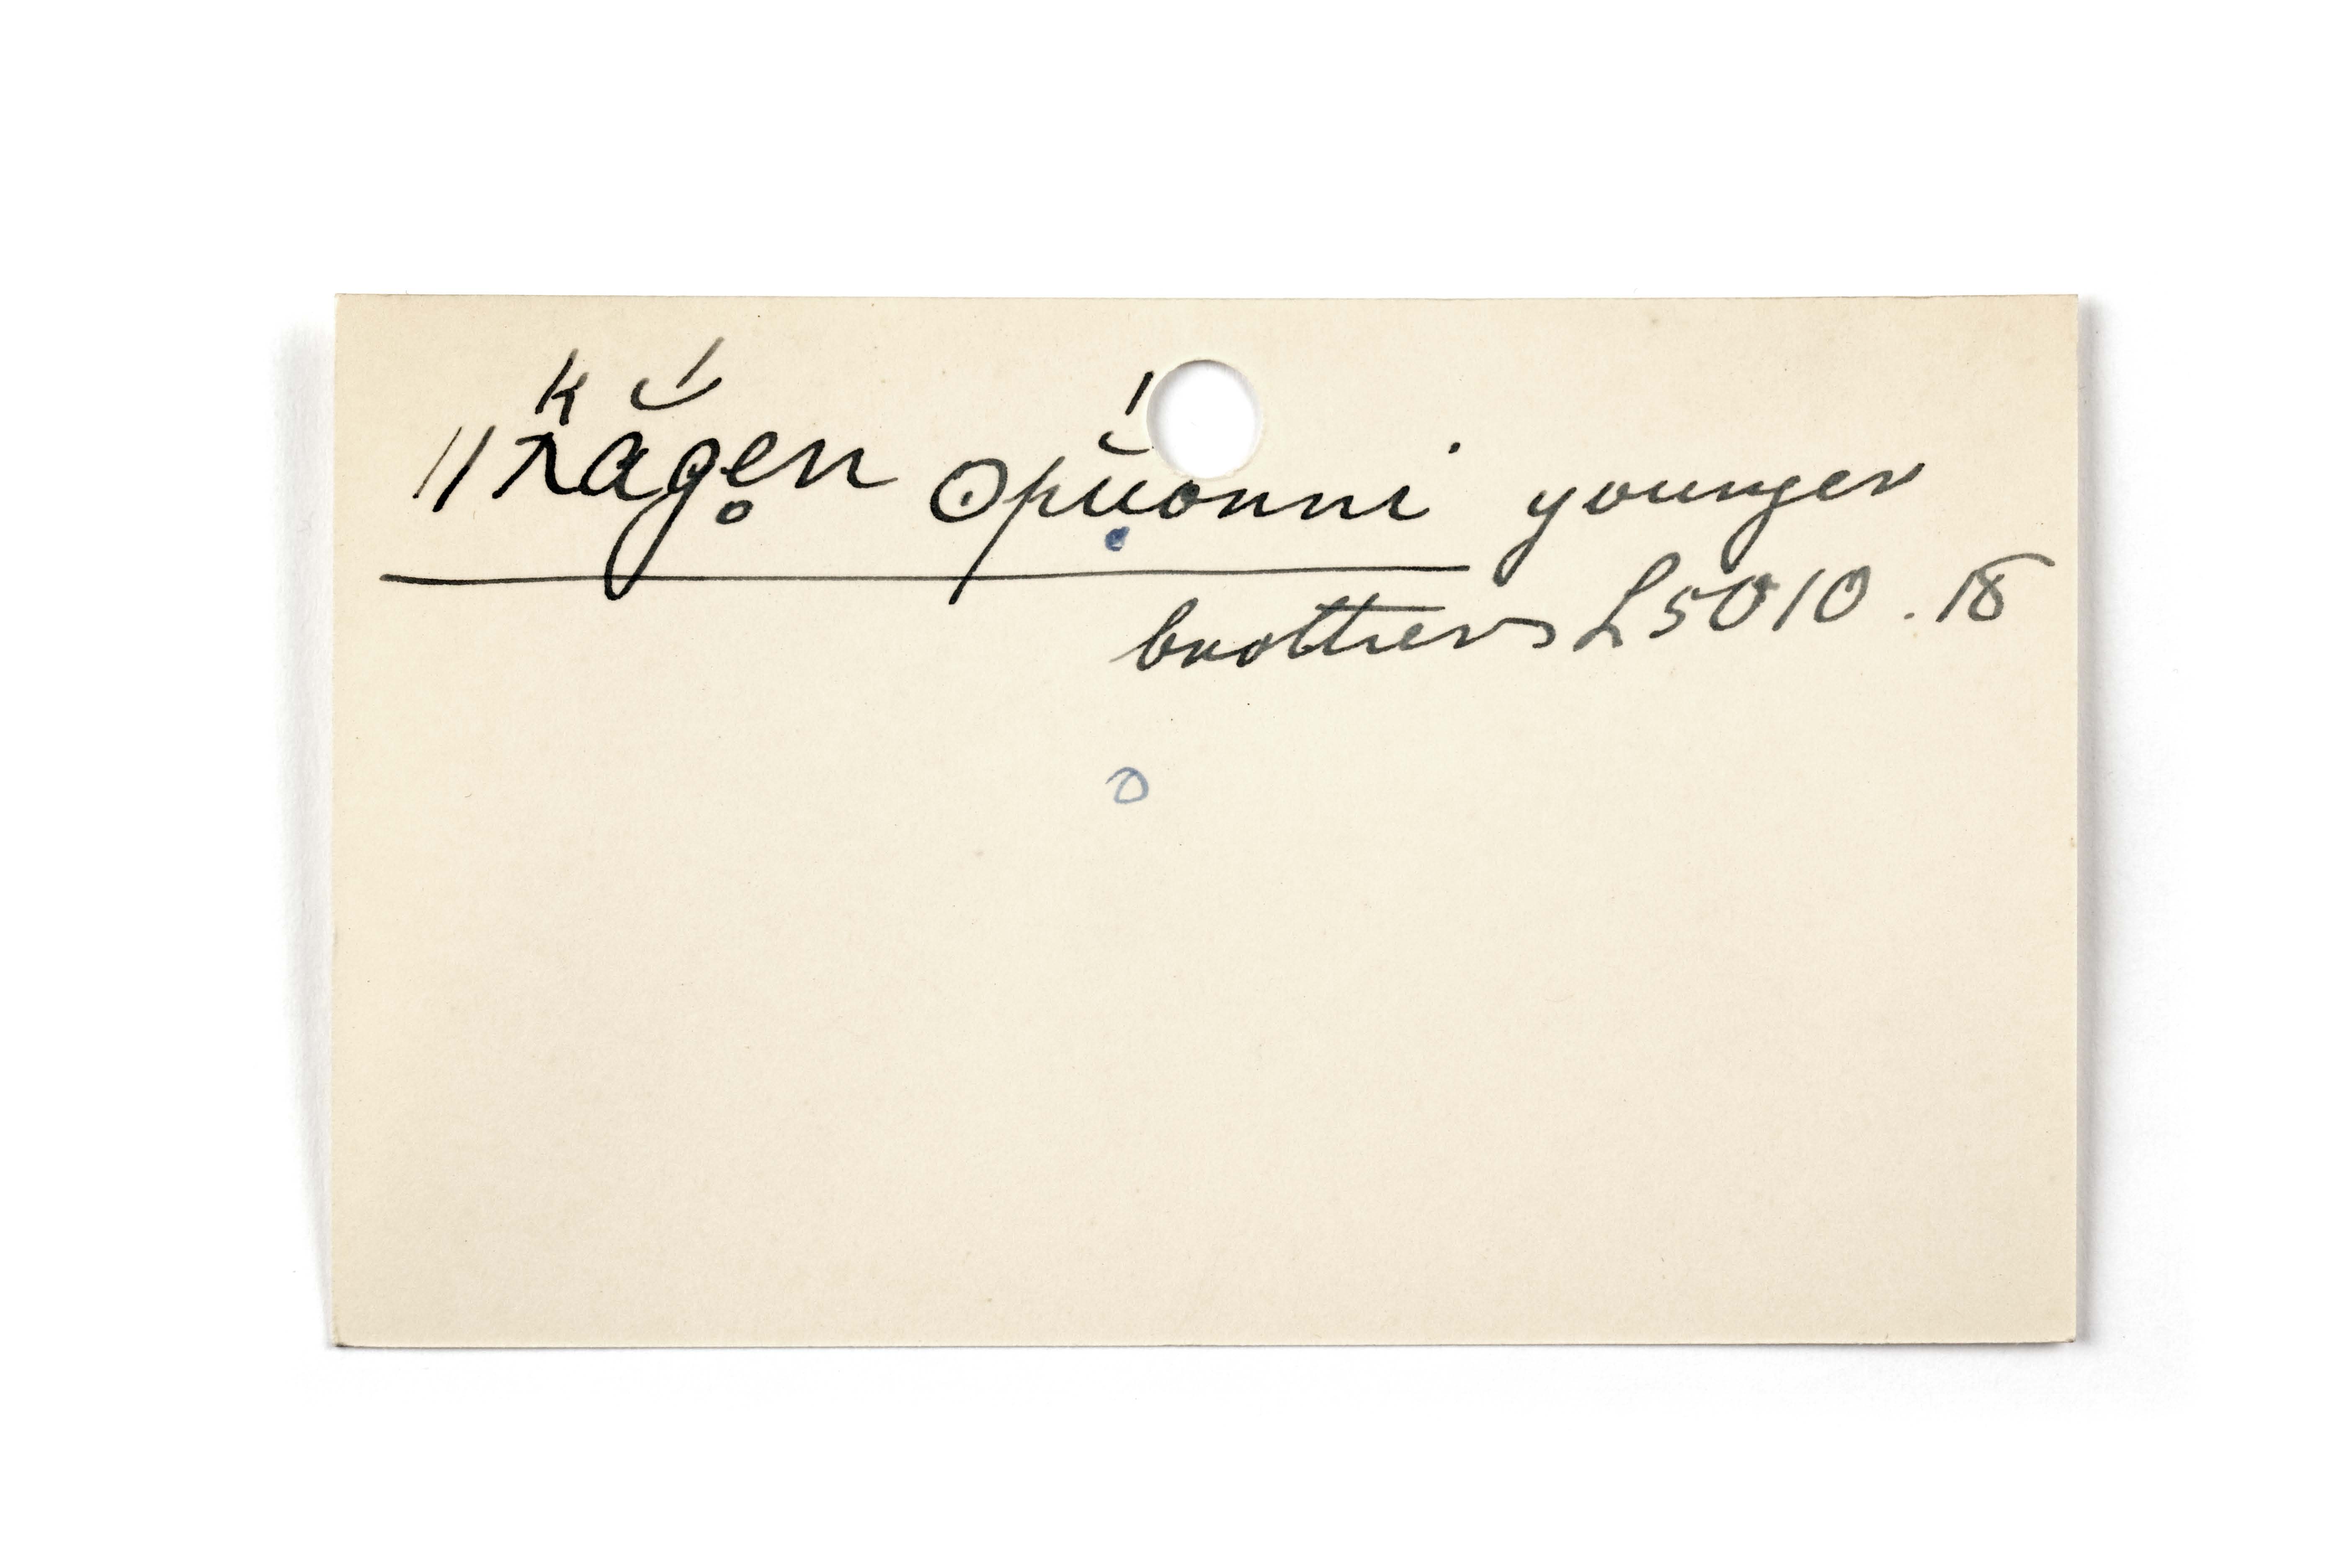 ǁkắgen opŭ́onni younger
brothers L5010.18